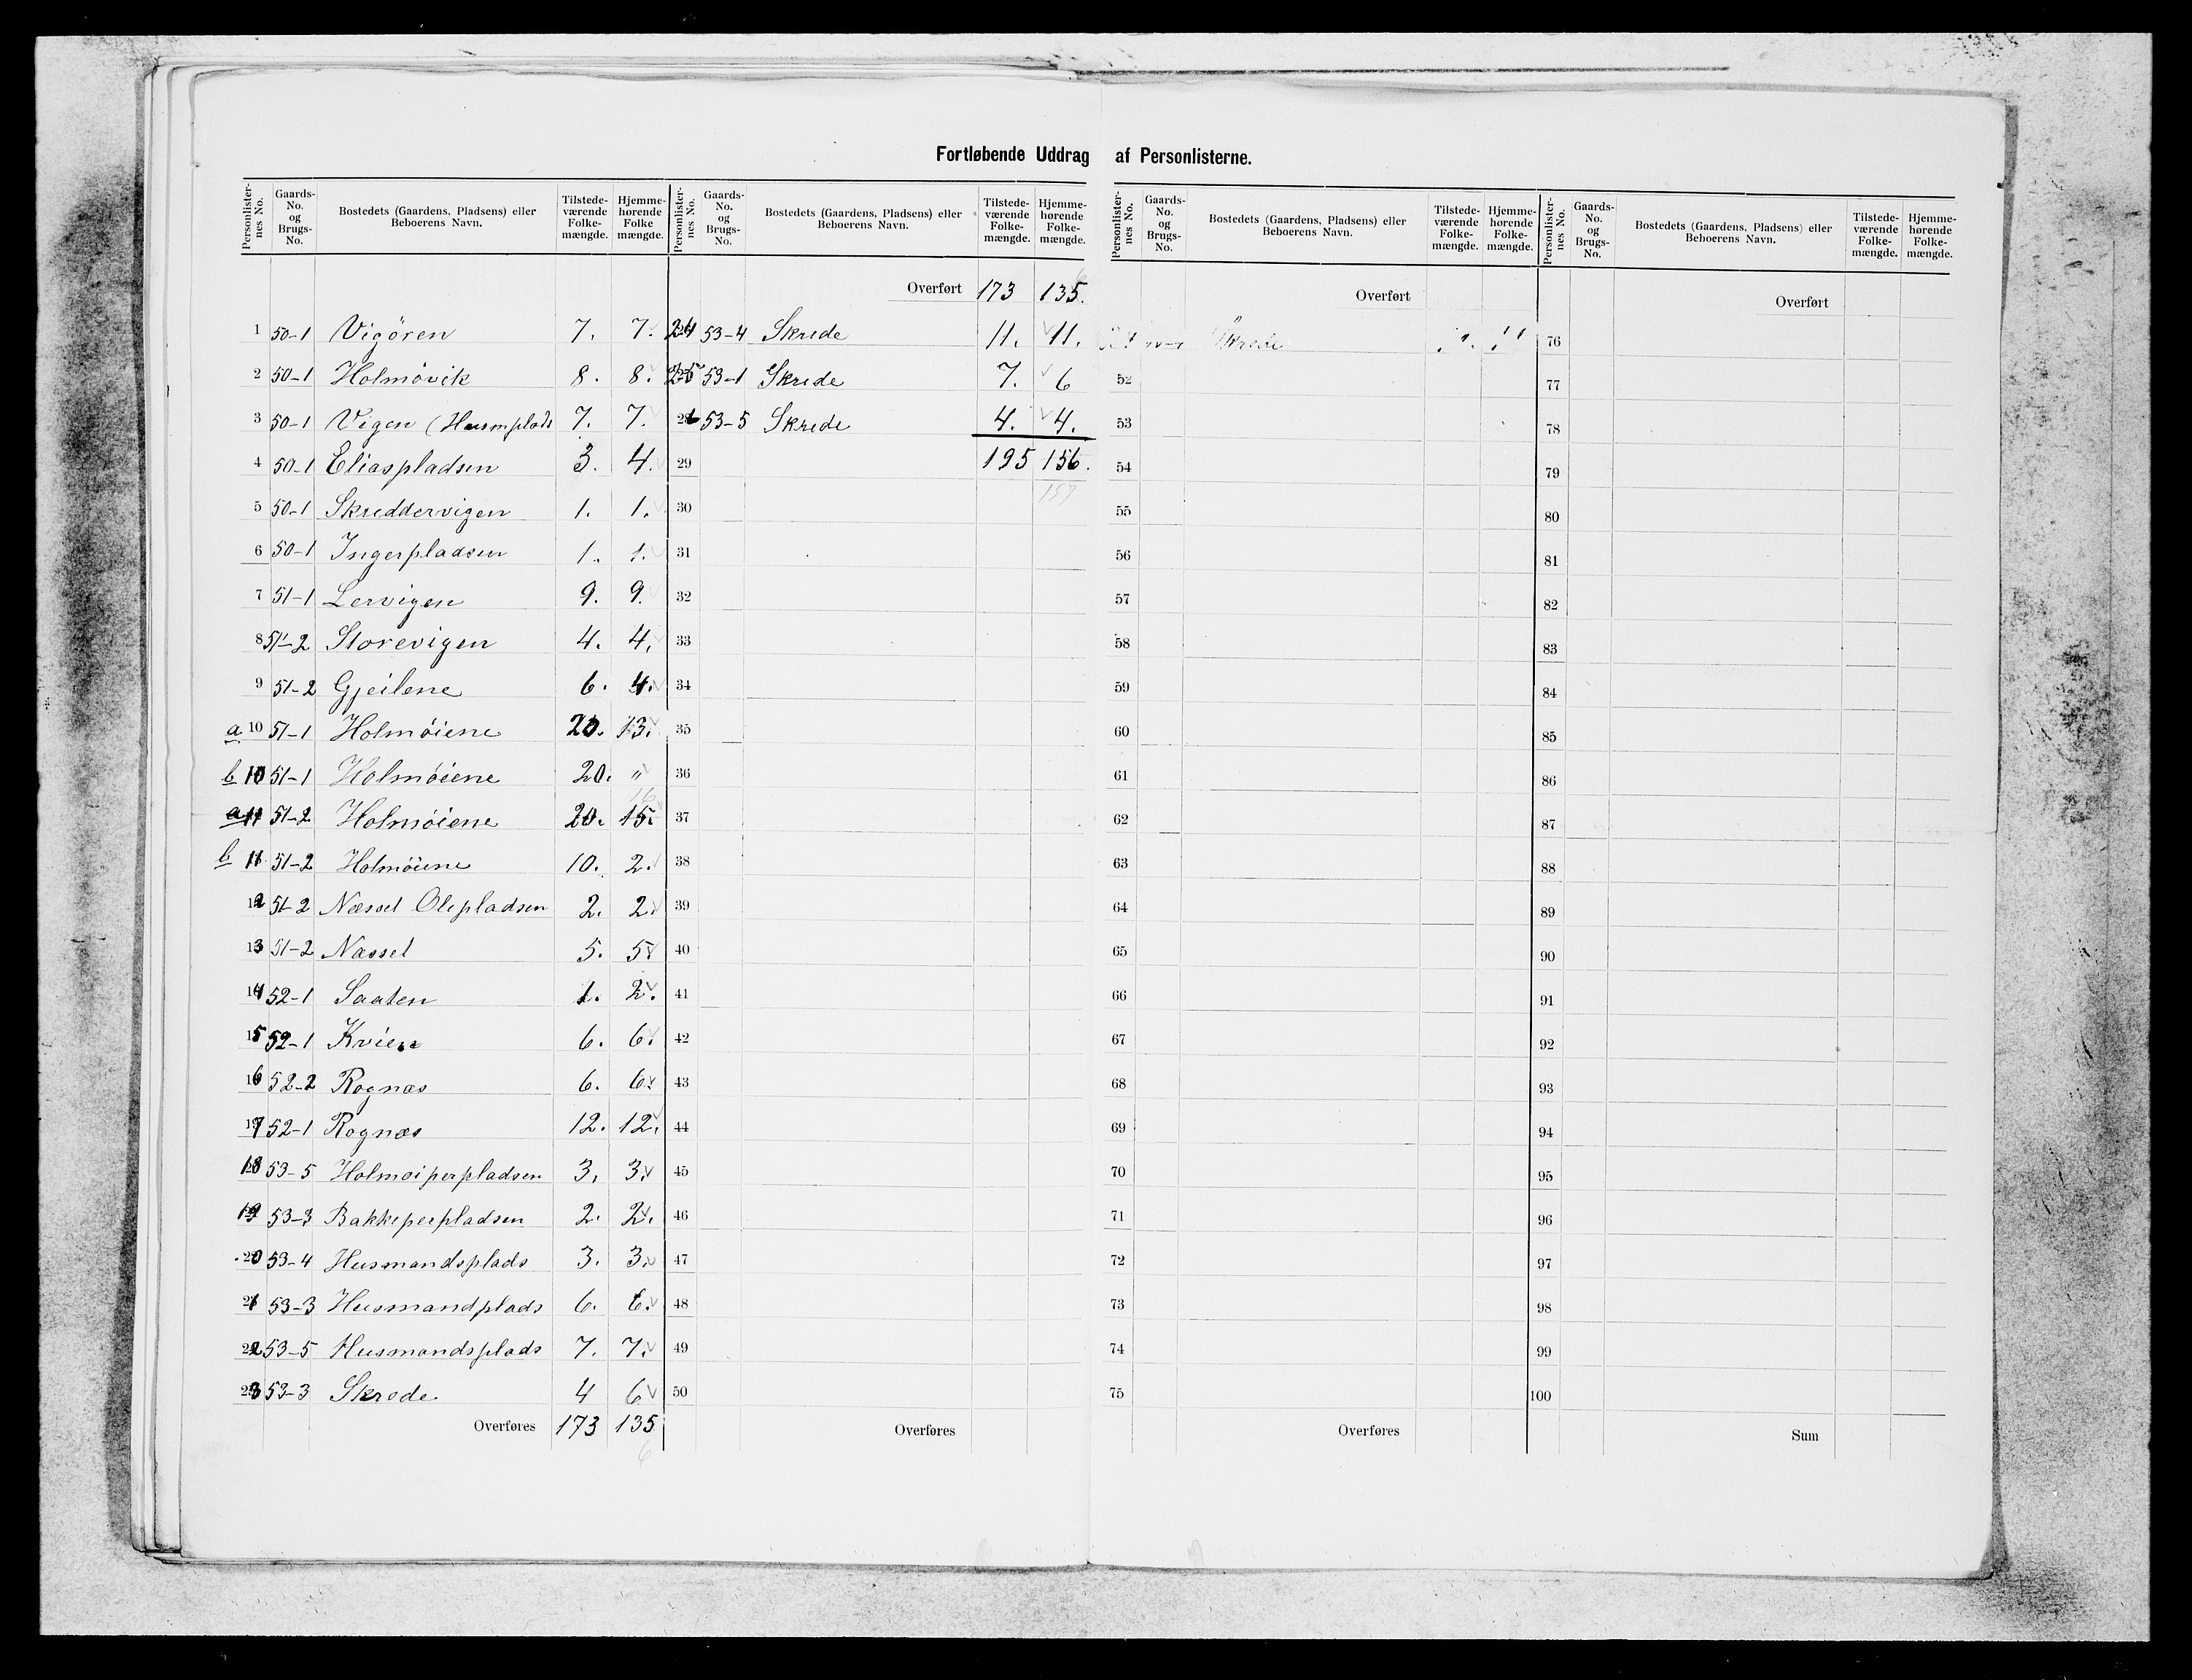 Fortløbende Uddrag af Personlisterne.
Personlister-nes No. | Gaards-No. og Brugs-No. | Bostedets (Gaardens, Pladsens) eller Beboerens Navn. | Tilstede-værende Folke-mængde. | Hjemme-hørende Folke mængde.
1 50-1 Vigören 7. 7.
2 50-1 Holmövik 8. 8.
3 50-1 Vigen (Husmplads 7. 7.
4 50-1 Eliaspladsen 3. 4.
5 50-1 Skreddervigen 1. 1.
6 50-1 Ingerpladsen 1. 1.
7 51-1 Lervigen 9. 9.
8 51-2 Storevigen 4. 4.
9 51-2 Gjeilene 6. 4.
a 10 51-1 Holmöiene 20. 13.
b 10 51-1 Holmöiene 20. "
a 11 51-2 Holmöiene 20. 15.
b 11 51-2 Holmöiene 10. 2.
12 51-2 Næsset Olepladsen 2. 2.
13 51-2 Næsset 5. 5
14 52-1 Saaten 1. 2.
15 52-1 Kvien 6. 6.
16 52-2 Rognæs 6. 6.
17 52-1 Rognæs 12. 12.
18 53-5 Holmoiperpladsen 3. 3.
19 53-3 Bakkeperpladsen 2. 2.
20 53-4 Husmandsplads 3. 3.
21 53-3 Husmandplads 6. 6.
22 53-5 Husmandsplads 7. 7.
23 53-3 Skrede 4 6
Overføres 173 135
6
Personlister-nes No. | Gaards-No. og Brugs-No. | Bostedets (Gaardens, Pladsens) eller Beboerens Navn. | Tilstede-værende Folke-mængde. | Hjemme-hørende Folke-mængde.
Overført 173 135.
24 53-4 Skrede 11. 11.
25 53-1 Skrede 7. 6
26 53-5 Skrede 4. 4.
29 195 156.
157
30
31
32
33
34
35
36
37
38
39
40
41
42
43
44
45
46
47
48
49
50
Overføres
Personlister-nes No. | Gaards-No. og Brugs-No. | Bostedets (Gaardens, Pladsens) eller Beboerens Navn. | Tilstede-værende Folke-mængde. | Hjemme-hørende Folke-mængde.
Overført
Skrede 11
52
53
54
55
56
57
58
59
60
61
62
63
64
65
66
67
68
69
70
71
72
73
74
75
Overføres
Personlister-nes No. | Gaards-No. og Brugs-No. | Bostedets (Gaardens, Pladsens) eller Beboerens Navn. | Tilstede-værende Folke-mængde. | Hjemme-hørende Folke-mængde.
Overført
76
77
78
79
80
81
82
83
84
85
86
87
88
89
90
91
92
93
94
95
96
97
98
99
100
Sum